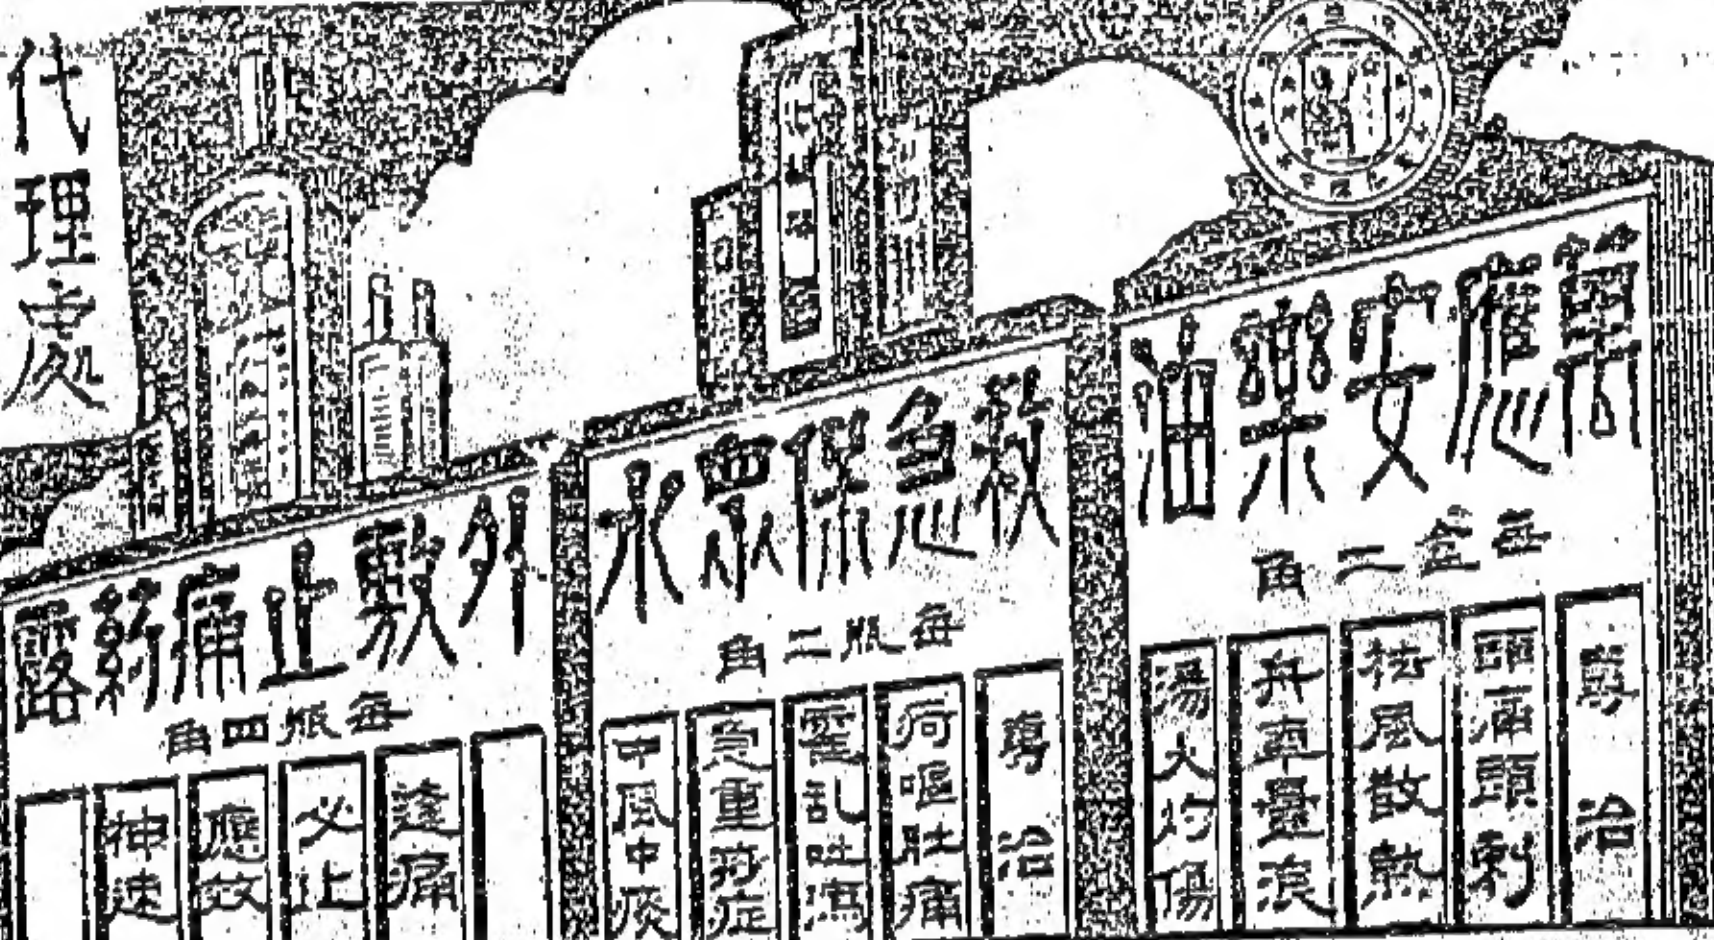 萬應安樂油
每盒二角
專治
頭痛頭刺
祛風散熱
舟車暈浪
湯火灼傷
救急保眾水
每瓶二角
專治
疴嘔肚痛
霍乱吐瀉
急重痧症
中風中痰
外敷止痛葯露
每瓶四角
逢痛
必止
應效
神速
代理處